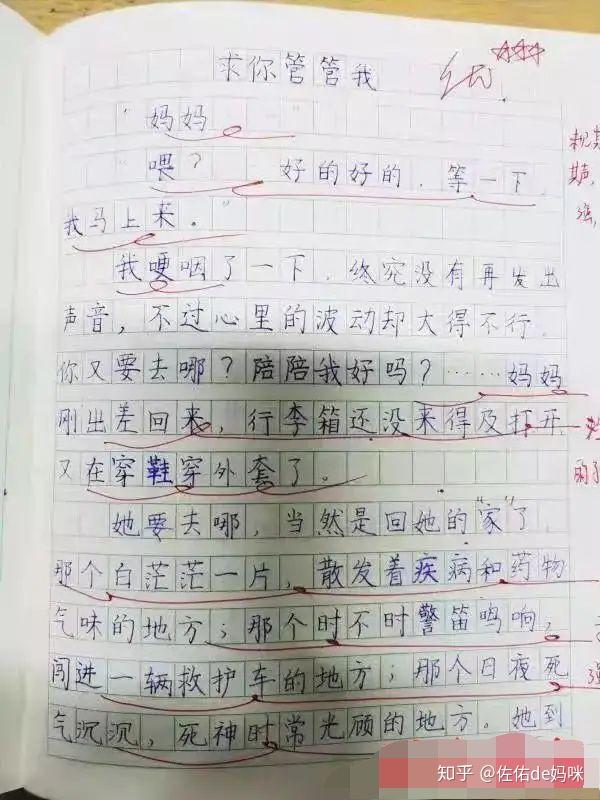 求你管管我
优
"妈妈……"
"喂？……好的好的，等一下，
我马上来。"
我哽咽了一下，终究没有再发出
声音，不过心里的波动却大得不行。
你又要去哪？陪陪我好吗？……妈妈
刚出差回来，行李箱还没来得及打开，
又在穿鞋穿外套了。
她要去哪，当然是回她的"家"了，
那个白茫茫一片，散发着疾病和药物
气味的地方；那个时不时警笛鸣响，
闯进一辆救护车的地方；那个日夜死
气沉沉，死神时常光顾的地方。她到
知乎 @佐佑de妈咪